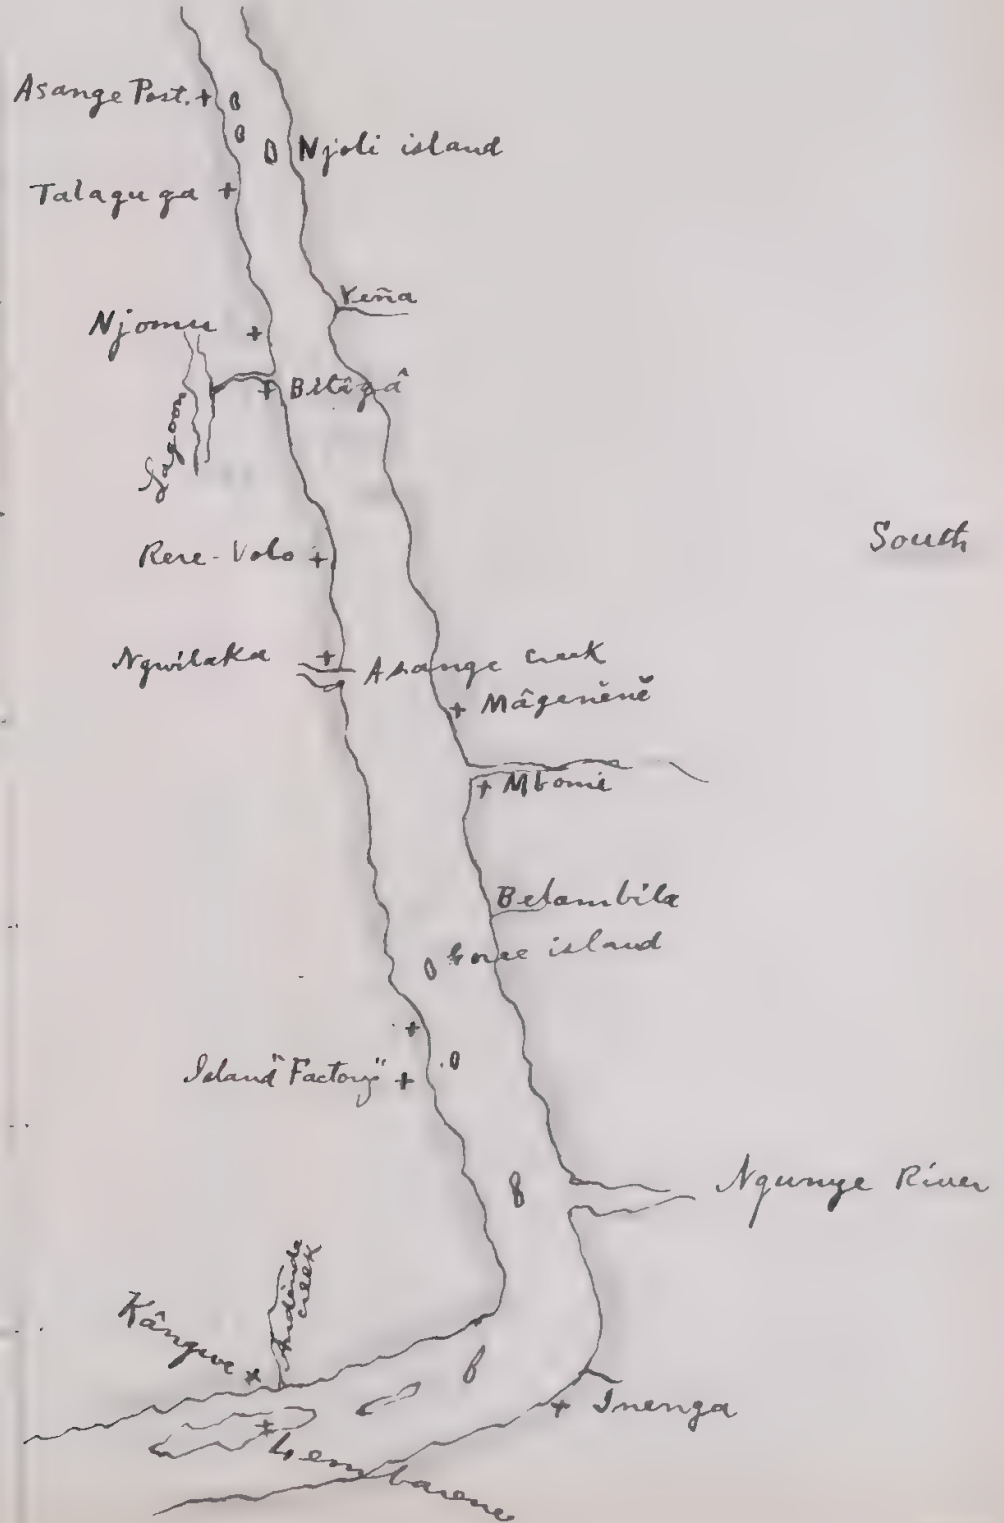 Asange Post.
Njoli island
Talaguga
Yeña
Njomu
Bitâgâ
Lagoon
South
Rere-Volo
Ngwilaka
Asange creek
Mâgĕnĕnĕ
Mbomi
Belambila
island
Island "Factory"
Ngunye River
creek
Kângwe
Inenga
Lembarene